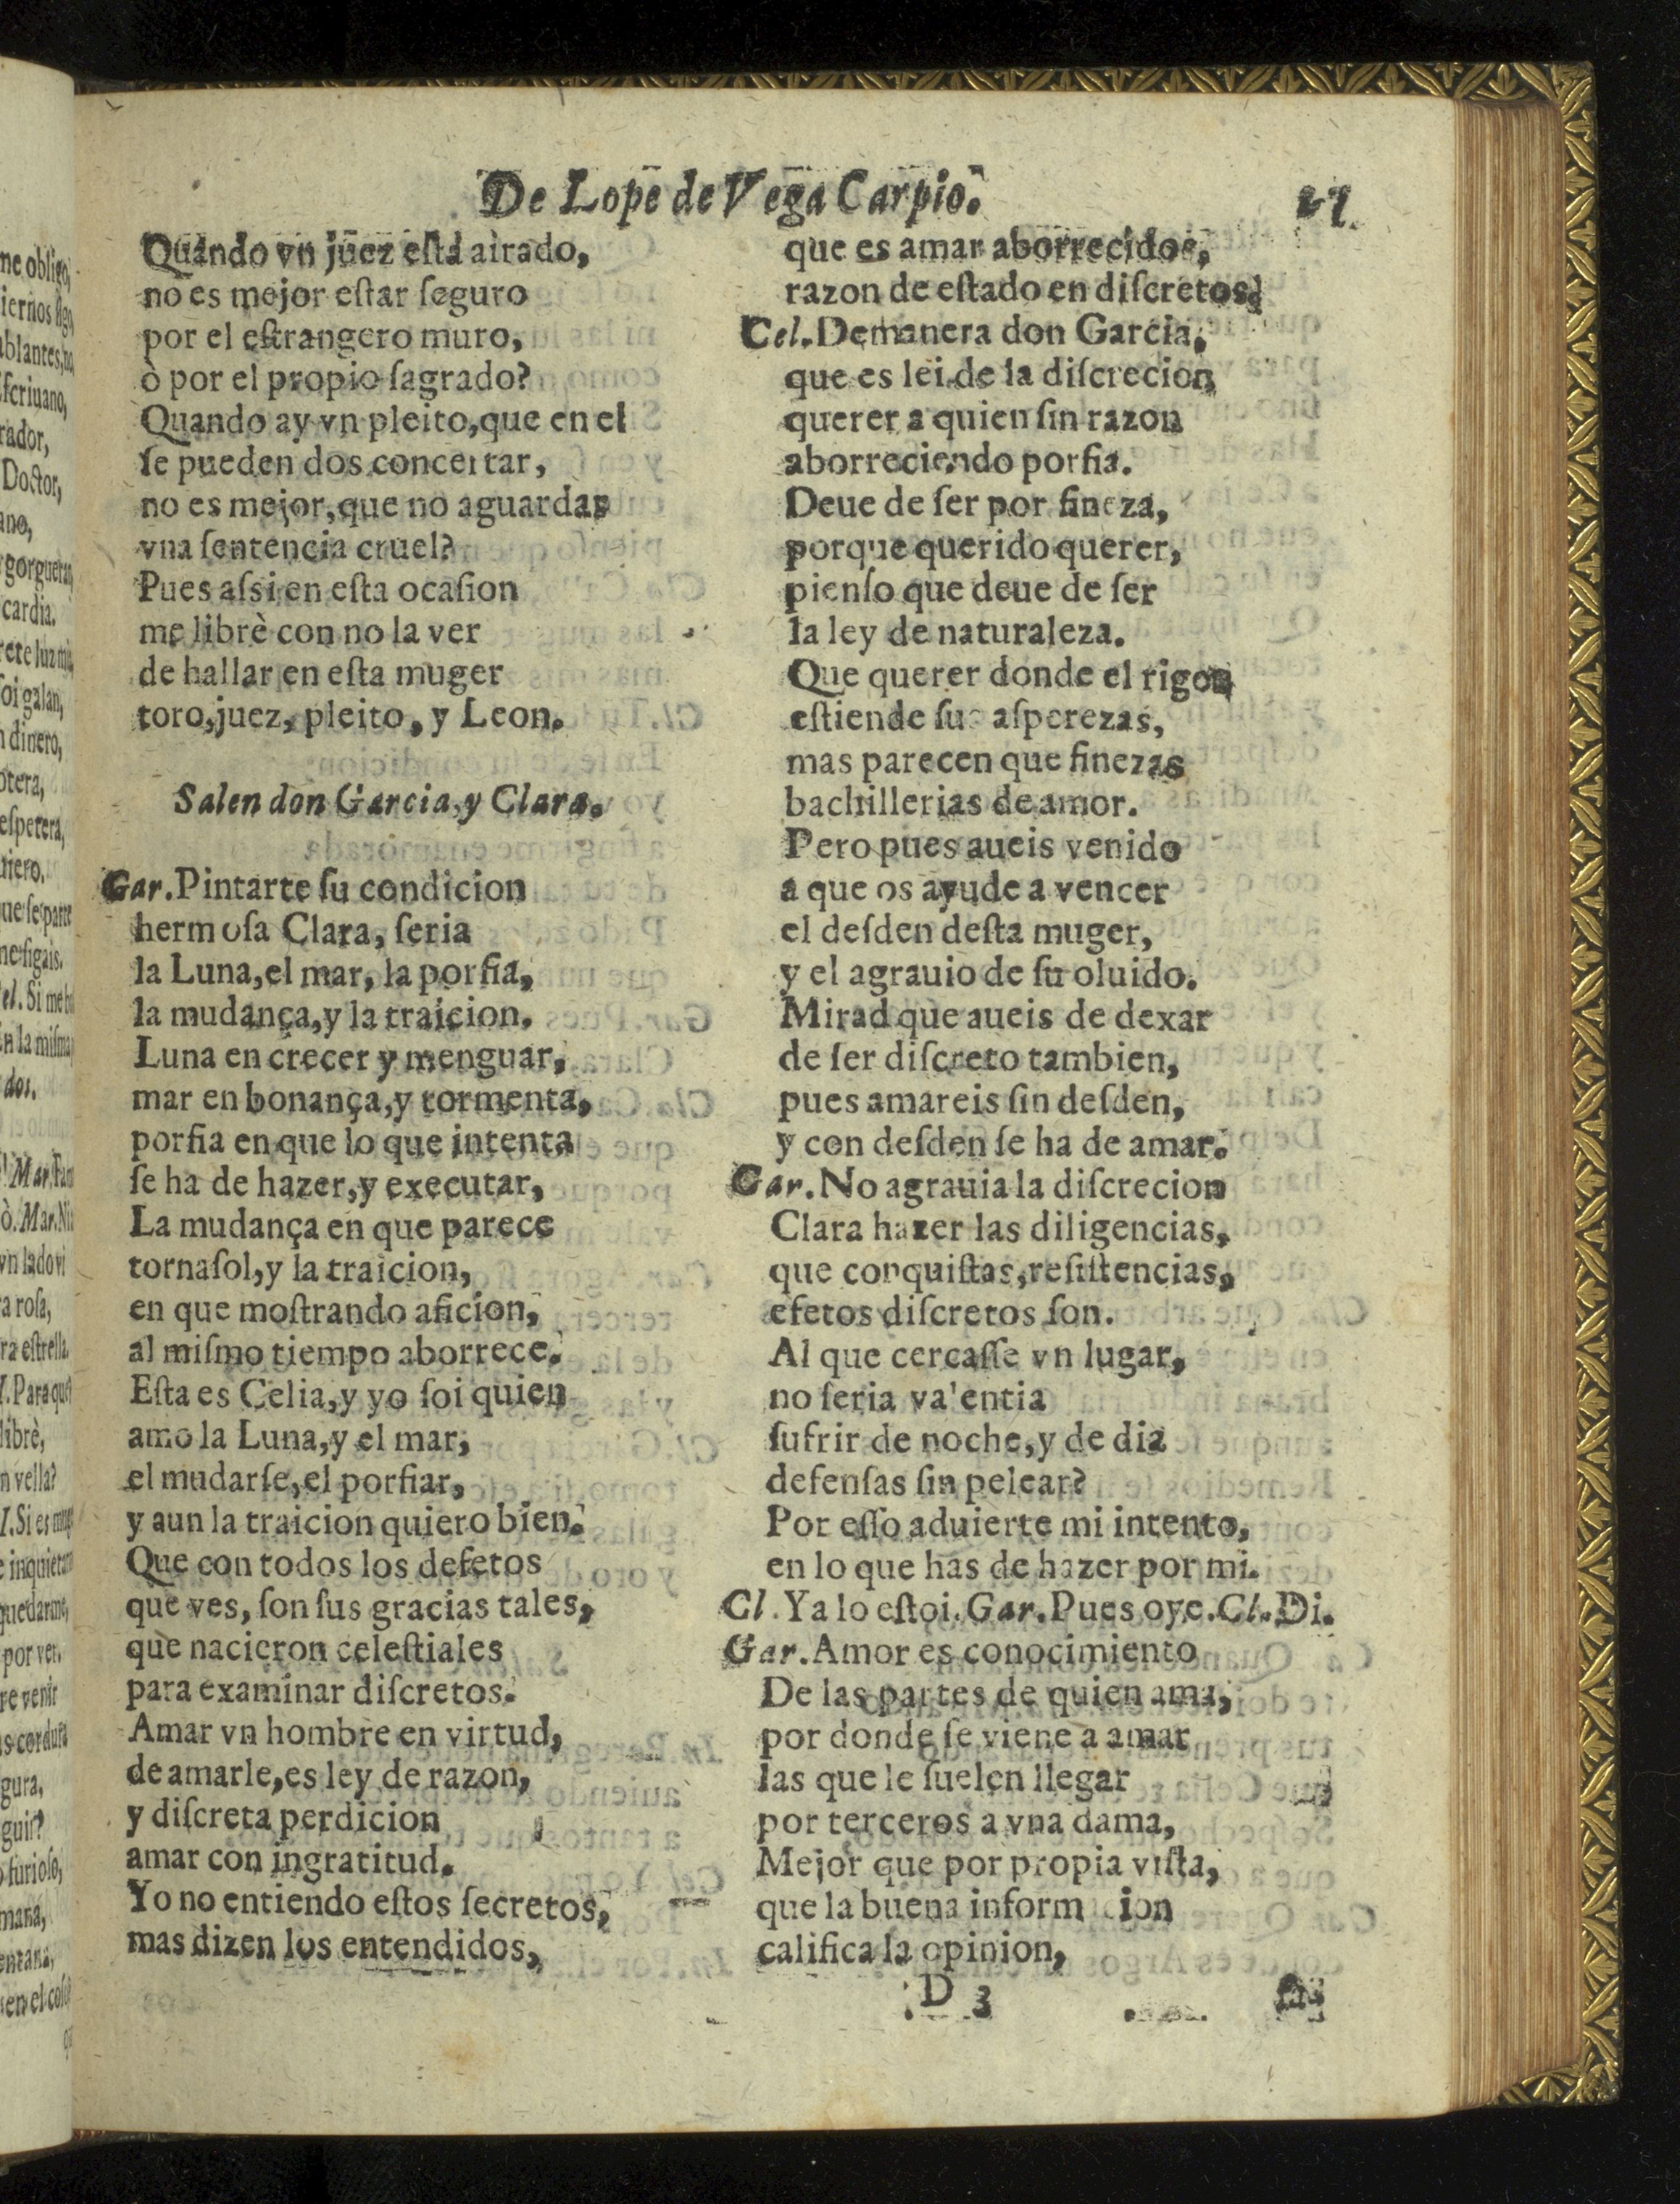 De Lope de Vega Carpio.
27
Quando vn juez eſtá airado,
no es mejor eſtar ſeguro
por el eſtrangero muro,
ò por el propio ſagrado?
Quando ay vn pleito, que en el
ſe pueden dos concertar,
no es mejor, que no aguardar
vna ſentencia cruel?
Pues aſsi en eſta ocaſion
me librè con no la ver
de hallar en eſta muger
toro, juez, pleito, y Leon.
Salen don Garcia, y Clara.
Gar. Pintarte ſu condicion
hermoſa Clara, ſeria
la Luna, el mar, la porfia,
la mudança, y la traicion.
Luna en crecer y menguar,
mar en bonança, y tormenta,
porfia en que lo que intenta
ſe ha de hazer, y executar,
La mudança en que parece
tornaſol, y la traicion,
en que moſtrando aficion,
al miſmo tiempo aborrece.
Eſta es Celia, y yo ſoi quien
amo la Luna, y el mar,
el mudarſe, el porfiar,
y aun la traicion quiero bien.
Que con todos los defetos
que ves, ſon ſus gracias tales,
que nacieron celeſtiales
para examinar diſcretos.
Amar vn hombre en virtud,
de amarle, es ley de razon,
y diſcreta perdicion
amar con ingratitud.
Yo no entiendo eſtos ſecretos,
mas dizen los entendidos,
que es amar aborrecidos,
razon de eſtado en diſcretos.
Cel. Demanera don Garcia,
que es lei de la diſcrecion
querer a quien ſin razon
aborreciendo porfia.
Deue de ſer por fineza,
porque querido querer,
pienſo que deue de ſer
la ley de naturaleza.
Que querer donde el rigor
eſtiende ſus aſperezas,
mas parecen que finezas
bachillerias de amor.
Pero pues aueis venido
a que os ayude a vencer
el deſden deſta muger,
y el agrauio de ſu oluido.
Mirad que aueis de dexar
de ſer diſcreto tambien,
pues amareis ſin deſden,
y con deſden ſe ha de amar.
Gar. No agrauia la diſcrecion
Clara hazer las diligencias,
que conquiſtas, reſiſtencias,
efetos diſcretos ſon.
Al que cercaſſe vn lugar,
no ſeria valentia
ſufrir de noche, y de dia
defenſas ſin pelear?
Por eſſo aduierte mi intento,
en lo que has de hazer por mi.
Cl. Ya lo eſtoi. Gar. Pues oye. Cl. Di.
Gar. Amor es conocimiento
De las partes de quien ama,
por donde ſe viene a amar
las que le ſuelen llegar
por terceros a vna dama,
Mejor que por propia viſta,
que la buena informacion
califica la opinion,
D 3